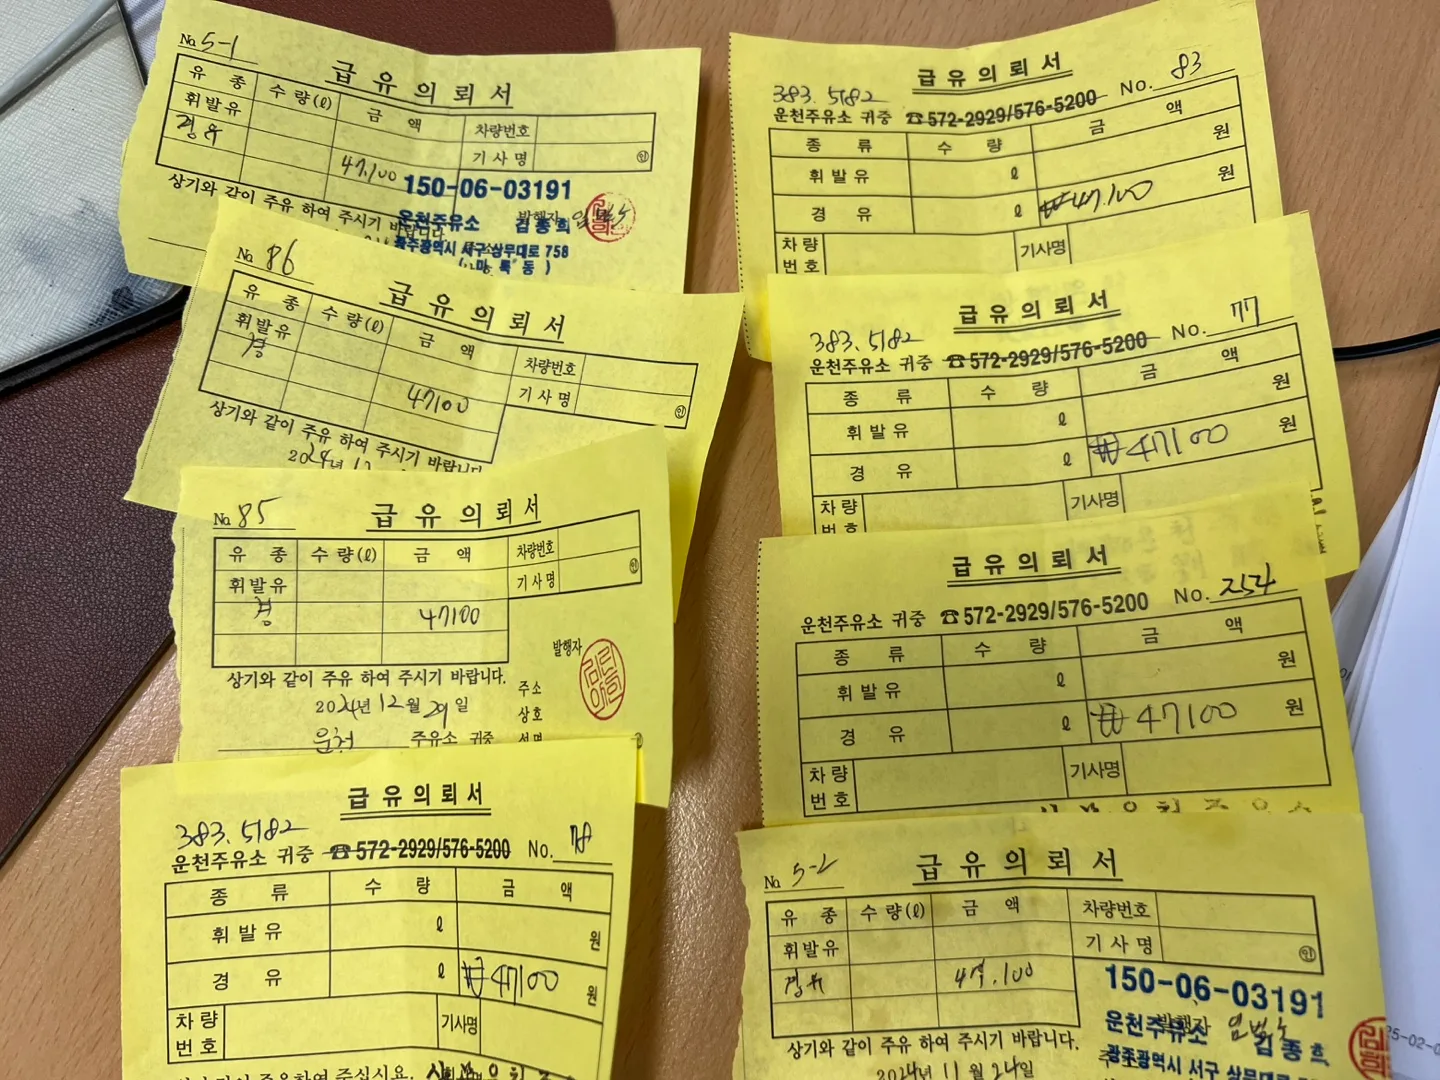 No. 5-1
급유의뢰서
유종 수량(ℓ) 금액 차량번호
휘발유 기사명 ㊞
경유 47,100
상기와 같이 주유 하여 주시기 바랍니다.
150-06-03191
운천주유소 발행자 김종희
광주광역시 서구 상무대로 758
(마륵동)
No. 86
급유의뢰서
유종 수량(ℓ) 금액 차량번호
휘발유 기사명 ㊞
경 47100
상기와 같이 주유 하여 주시기 바랍니다.
2024년 12
No. 85
급유의뢰서
유종 수량(ℓ) 금액 차량번호
휘발유 기사명 ㊞
경 47100
발행자
상기와 같이 주유 하여 주시기 바랍니다.
주소
2024년 12월 29일
상호
운천 주유소 귀중 성명
급유의뢰서
383.5182
운천주유소 귀중 ☎572-2929/576-5200 No. 78
종류 수량 금액
휘발유 ℓ 원
경유 ℓ ₩47100 원
차량번호 기사명
급유의뢰서
383.5182 No. 83
운천주유소 귀중 ☎572-2929/576-5200
종류 수량 금액
휘발유 ℓ 원
경유 ℓ ₩47,100 원
차량번호 기사명
급유의뢰서
383.5182 No. 77
운천주유소 귀중 ☎572-2929/576-5200
종류 수량 금액
휘발유 ℓ 원
경유 ℓ ₩47100 원
차량번호 기사명
급유의뢰서
운천주유소 귀중 ☎572-2929/576-5200 No. 254
종류 수량 금액
휘발유 ℓ 원
경유 ℓ ₩47100 원
차량번호 기사명
No. 5-2
급유의뢰서
유종 수량(ℓ) 금액 차량번호
휘발유 기사명 ㊞
경유 47,100
150-06-03191
상기와 같이 주유 하여 주시기 바랍니다.
운천주유소 발행자 김종희
2024년 11월 24일
광주광역시 서구 상무대로 758